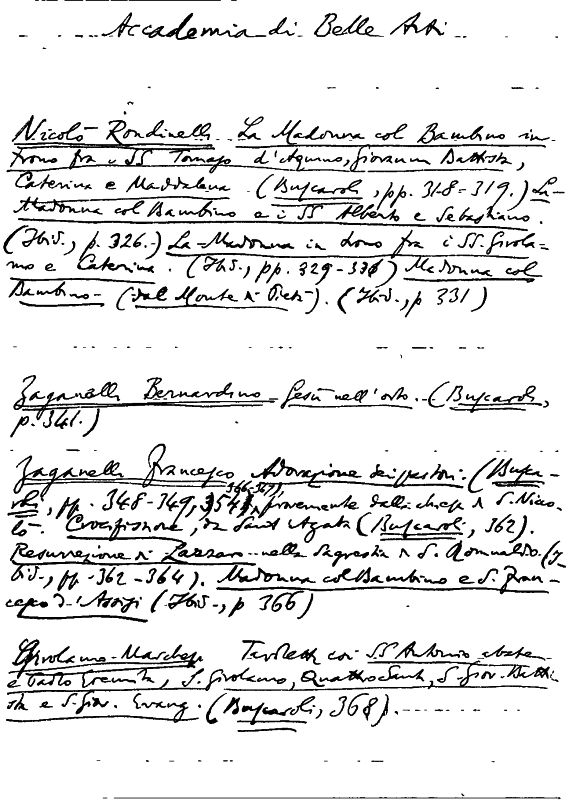 Accademia di Belle Arti
Nicolò Rondinelli La Madonna col Bambino in
trono fra i SS Tomaso d'Aquino, Giovanni Battista,
Caterina e Maddalena (Buscaroli, pp. 318-319.) La
Madonna col Bambino e i SS Alberto e Sebastiano.
(Ibid., p. 326.) La Madonna in trono fra i SS. Girola-
mo e Caterina. (Ibid., pp. 329-330) Madonna col
Bambino (dal Monte di Pietà). (Ibid., p 331)
Zaganelli Bernardino Gesù nell'orto. (Buscaroli,
p. 341.)
Zaganelli Francesco Adorazione dei pastori. (Busca-
366-367)
roli, pp. 348-349, 354), proveniente dalla chiesa di S. Nico-
lò. Crocifissione, da Sant'Agata (Buscaroli, 362).
Resurrezione di Lazzaro nella sagrestia di S. Romualdo. (I-
bid., pp. 362-364). Madonna col Bambino e S. Fran-
cesco d'Assisi (Ibid., p 366)
Girolamo Marchesi Tavolette coi SS Antonio abate
e Paolo Eremita, S. Girolamo, Quattro Santi, S. Giov. Batti-
sta e S. Giov. Evang. (Buscaroli, 368).